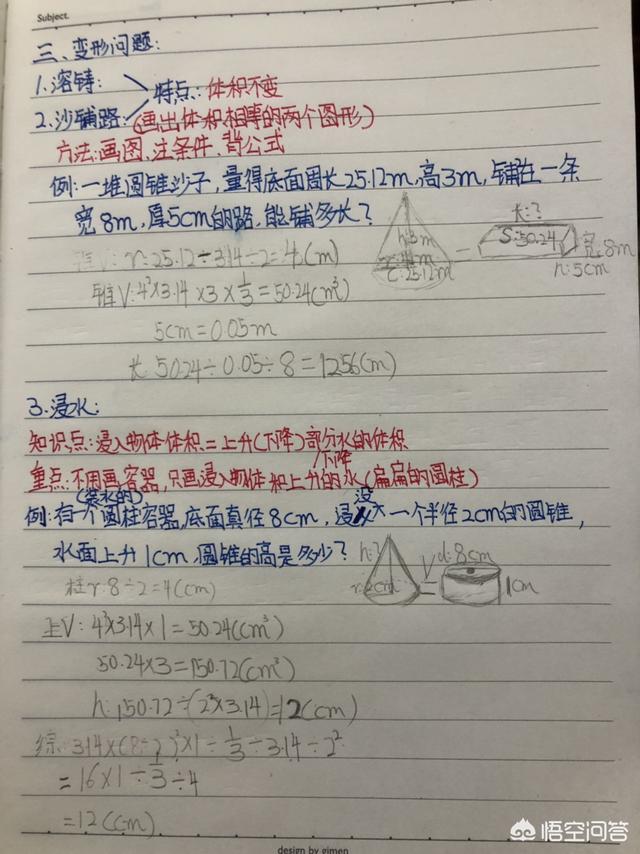 Subject.
三、变形问题:
1.溶铸:
特点:体积不变
2.沙铺路:(画出体积相等的两个图形)
方法:画图、注条件、背公式
例:一堆圆锥沙子,量得底面周长25.12m,高3m,铺在一条
宽8m,厚5cm的路,能铺多长?
h:3m
r:4m
C:25.12m
=
长:?
S:50.24
宽:8m
h:5cm
锥V:r:25.12÷3.14÷2=4(m)
锥V:4²×3.14×3×1/3=50.24(m³)
5cm=0.05m
长:50.24÷0.05÷8=125.6(m)
3.浸水:
知识点:浸入物体体积=上升(下降)部分水的体积
下降
重点:不用画容器,只画浸入物体和上升的水(扁扁的圆柱)
(装水的)
没
例:有一个圆柱容器,底面直径8cm,浸入一个半径2cm的圆锥,
水面上升1cm,圆锥的高是多少?
h:?
r:2cm
V
=
d:8cm
1cm
柱r:8÷2=4(cm)
上V:4²×3.14×1=50.24(cm³)
50.24×3=150.72(cm³)
h:150.72÷(2²×3.14)=12(cm)
综:3.14×(8÷2)²×1÷1/3÷3.14÷2²
=16×1÷1/3÷4
=12(cm)
design by gimen
悟空问答